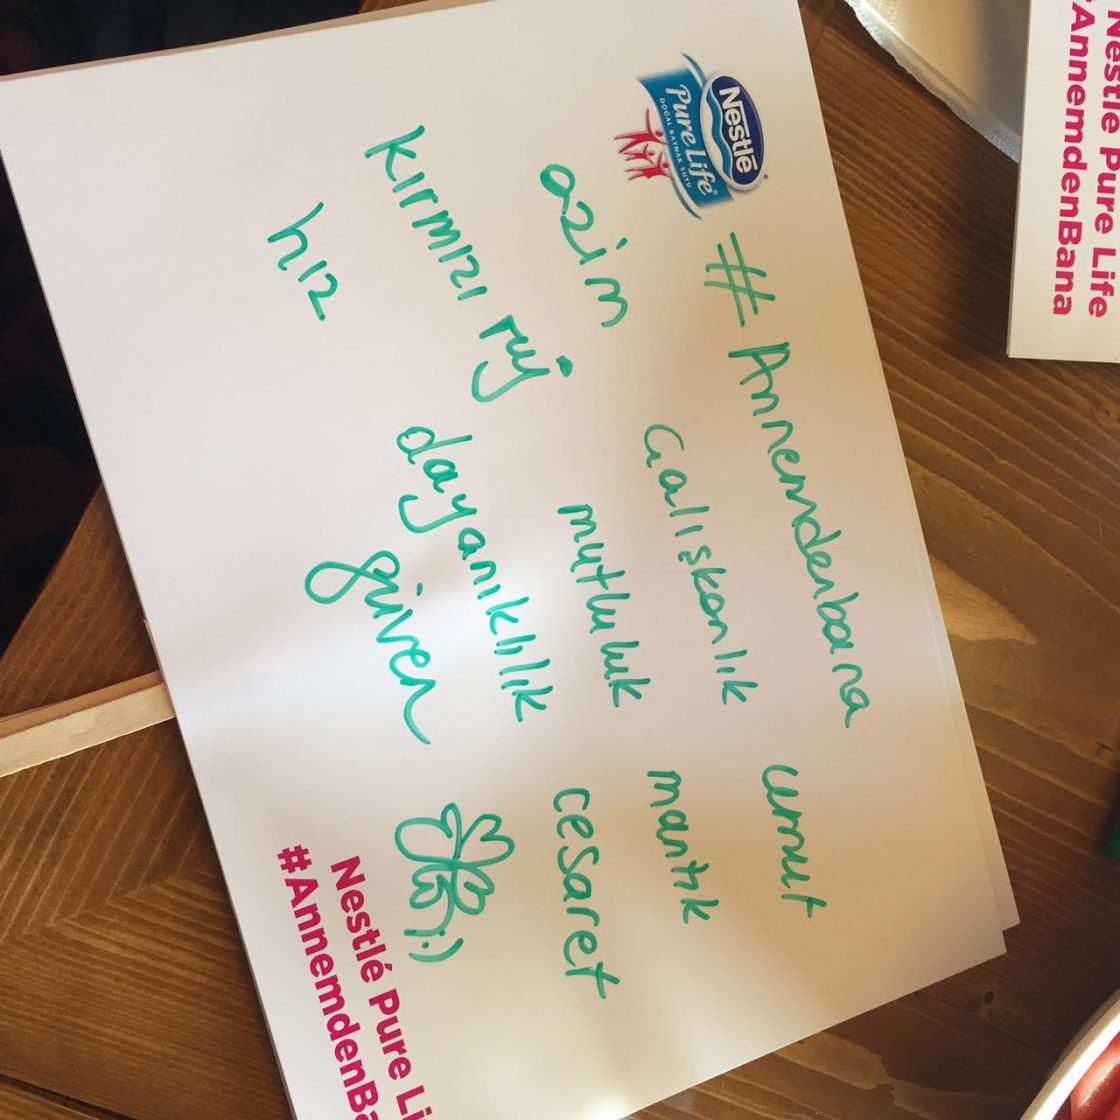 Nestlé
Pure Life
DOĞAL KAYNAK SUYU
#Annemdenbana
umut
azim
çalışkanlık
mantık
kırmızı ruj
mutluluk
cesaret
hız
dayanıklılık
güven
:)
Nestlé Pure Li
#AnnemdenBa
Nestlé Pure Life
#AnnemdenBana